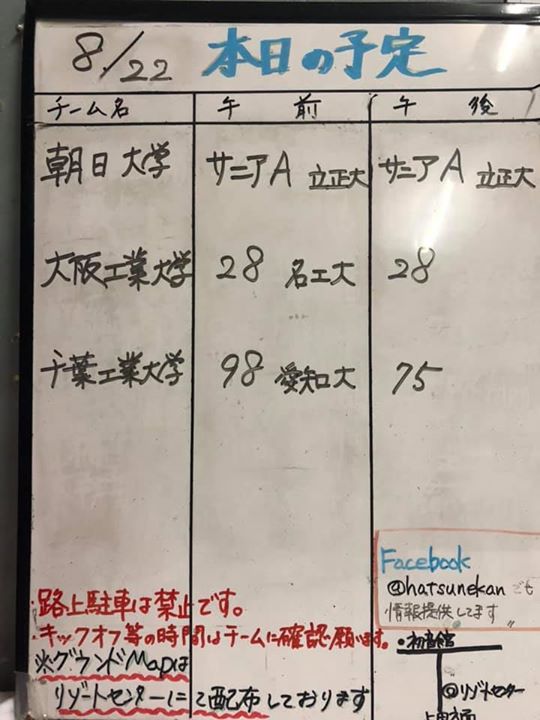 8/22 本日の予定
チーム名 午前 午後
朝日大学 サニアA 立正大 サニアA 立正大
大阪工業大学 28 名工大 28
千葉工業大学 98 愛知大 75
Facebook
@hatsunekanでも
情報提供してます"
・路上駐車は禁止です。
・キックオフ等の時間はチームに確認願います。
※グラウンドMapは
リゾートセンターにて配布しております
・初音館
◎リゾートセンター